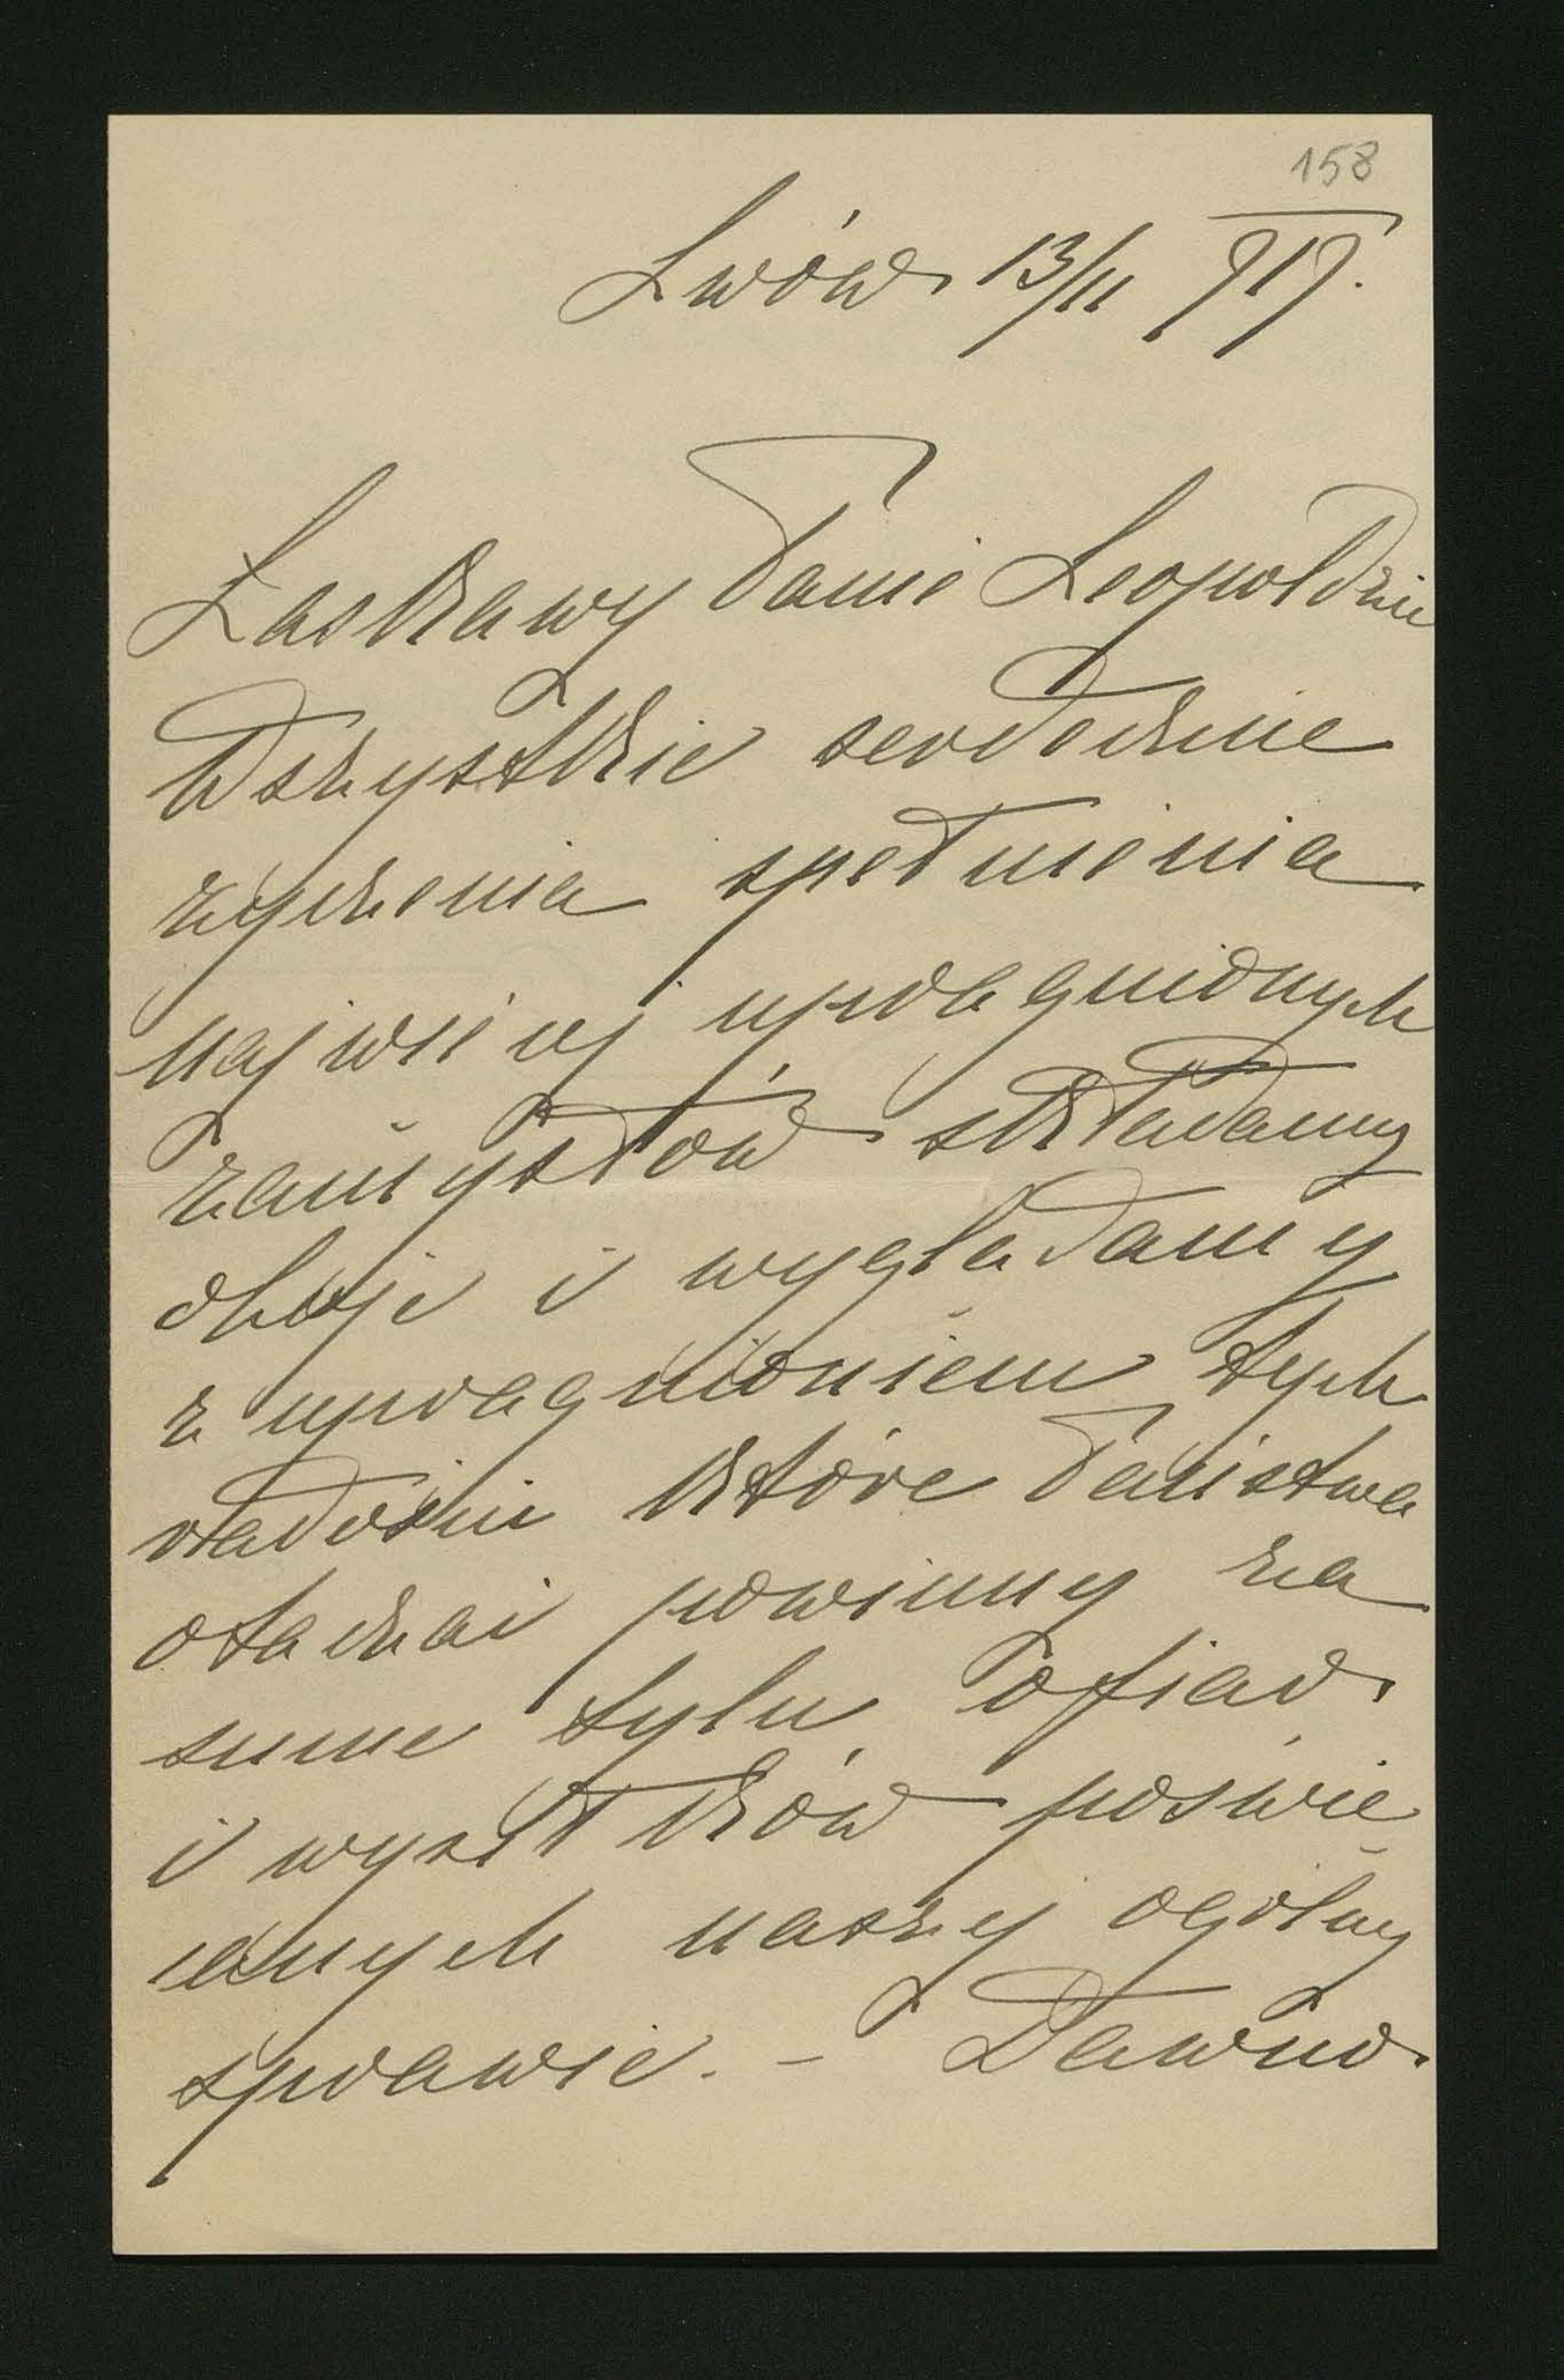 158
Lwów 13/11 917.
Łaskawy Panie Leopoldzie
Wszystkie serdeczne
życzenia spełnienia
najwięcej upragnionych
zamysłów składamy
oboje i wyglądamy
z upragnieniem tych
radości które Państwa
otaczać powinny za
sumę tylu ofiar
i wysiłków poświę
canych naszej ogólnej
sprawie. – Dawno